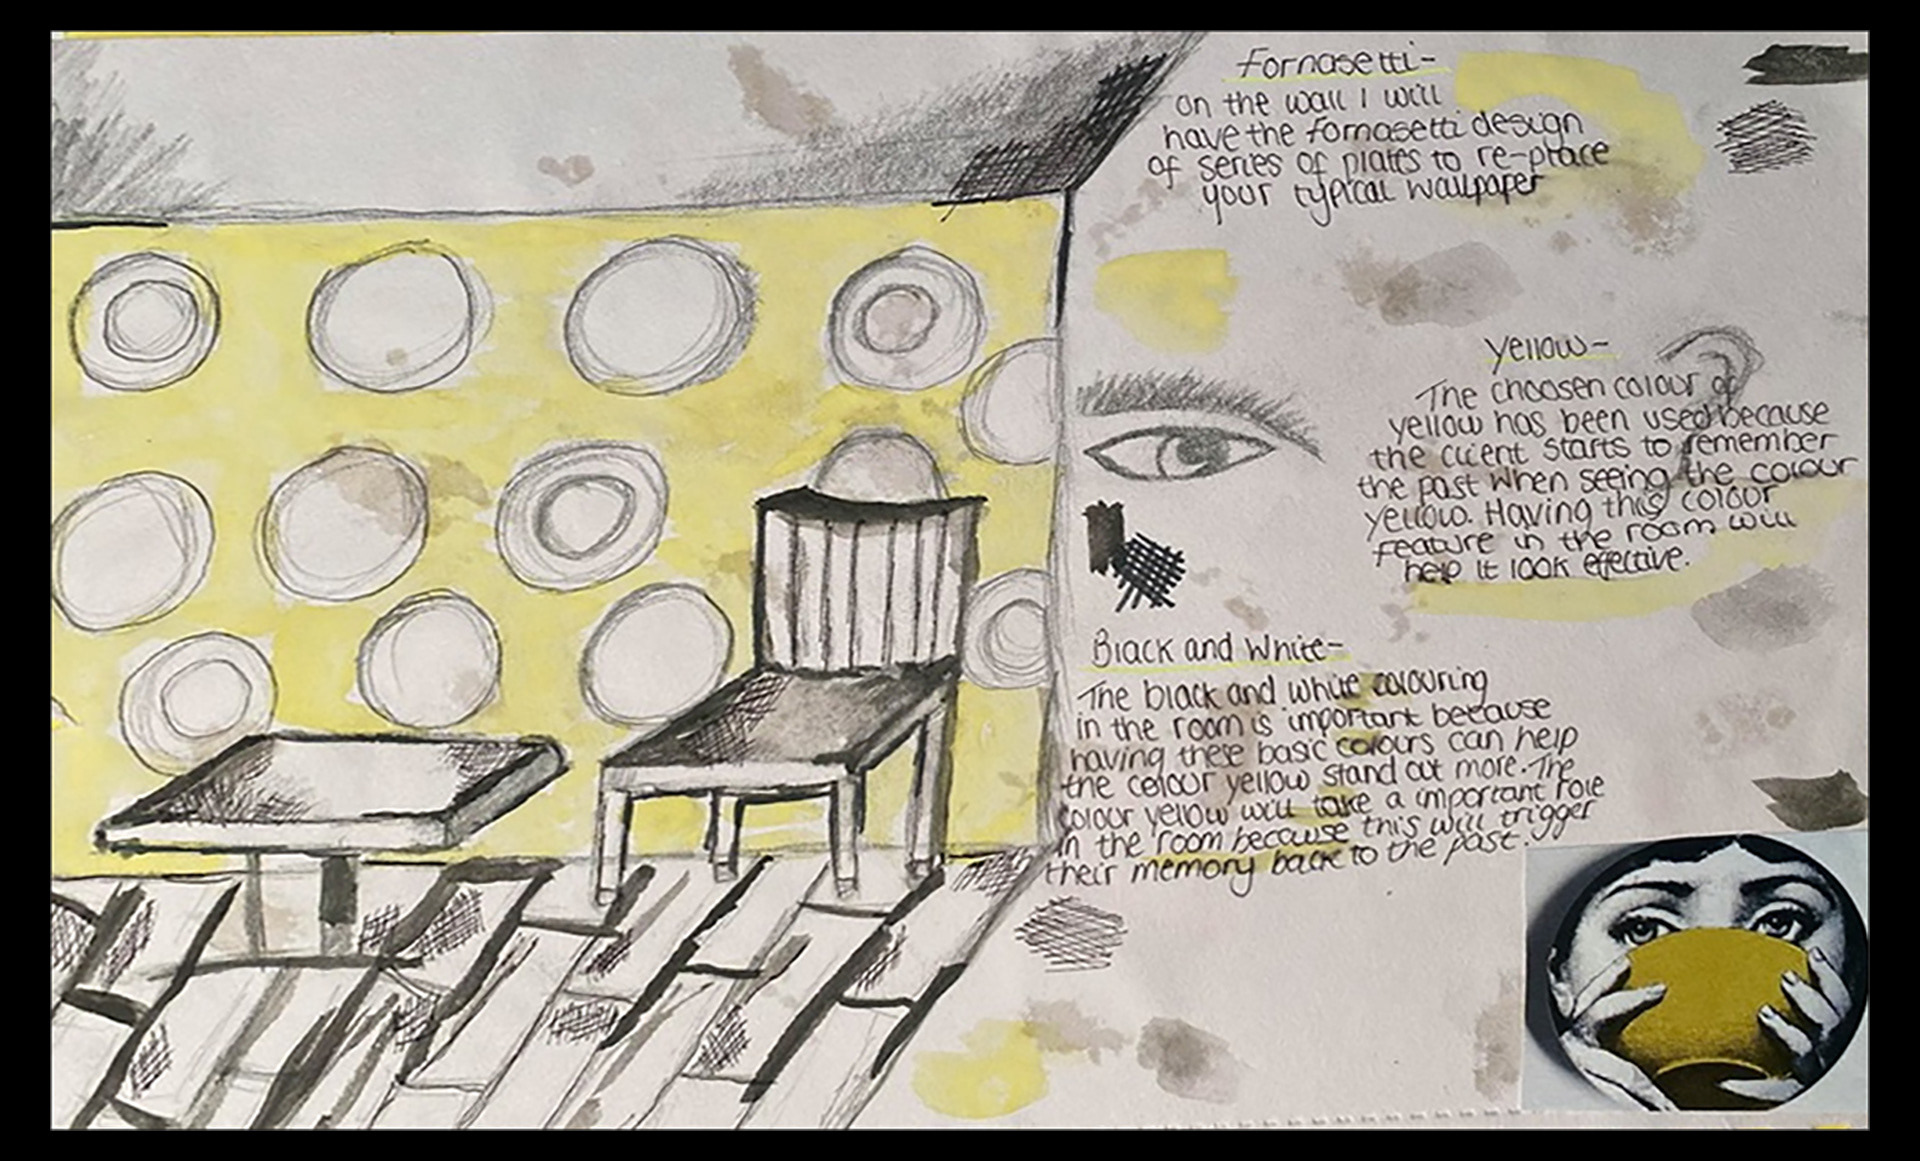 Fornasetti-
on the wall I will
have the Fornasetti design
of series of plates to re-place
your typical wallpaper
Yellow-
The choosen colour of
yellow has been used because
the client starts to remember
the past when seeing the colour
yellow. Having this colour
feature in the room will
help it look effective.
Black and White-
The black and white colouring
in the room is important because
having these basic colours can help
the colour yellow stand out more. The
colour yellow will take a important role
in the room because this will trigger
their memory back to the past.